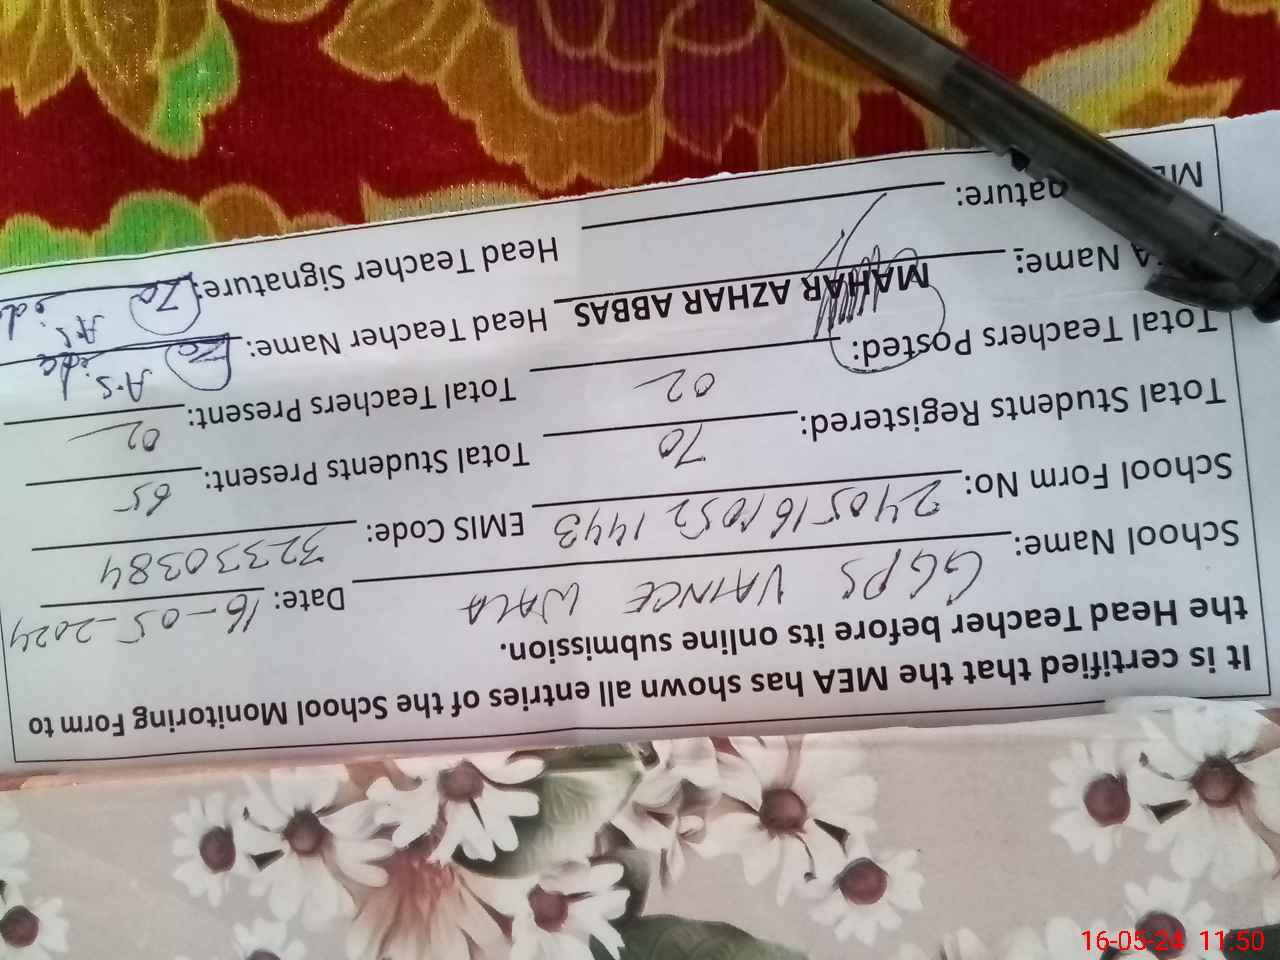 It is certified that the MEA has shown all entries of the School Monitoring Form to
the Head Teacher before its online submission.
School Name: GGPS VAINCE WALA Date: 16-05-2024
School Form No: 2405161052 1443 EMIS Code: 32330384
Total Students Registered: 70 Total Students Present: 65
Total Teachers Posted: 02 Total Teachers Present: 02
Name: MAHAR AZHAR ABBAS Head Teacher Name:
nature: Head Teacher Signature:
16-05-24 11:50